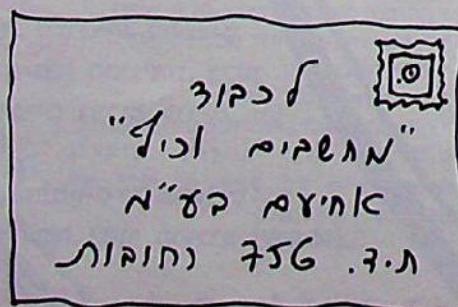 לכבוד
"מחשבים וכיף"
אחיעם בע"מ
ת.ד. 756 רחובות